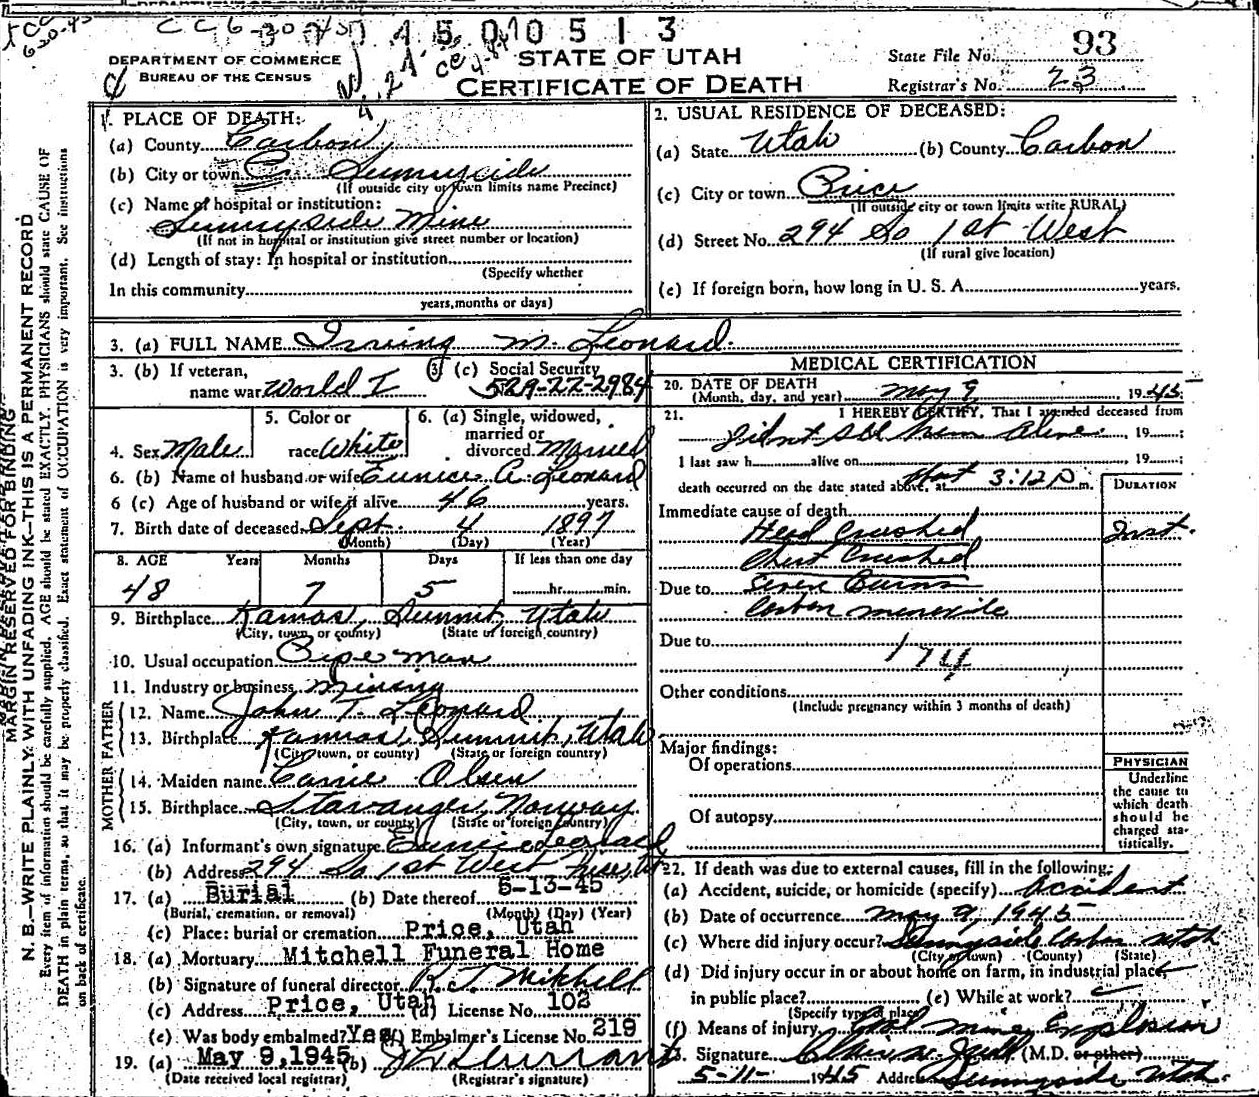 CC 6-30-45 4 5 0 10 5 1 3
DEPARTMENT OF COMMERCE
BUREAU OF THE CENSUS
STATE OF UTAH
CERTIFICATE OF DEATH
State File No. 93
Registrar's No. 23
MARGIN RESERVED FOR BINDING
N. B.—WRITE PLAINLY, WITH UNFADING INK—THIS IS A PERMANENT RECORD
Every item of information should be carefully supplied. AGE should be stated EXACTLY. PHYSICIANS should state CAUSE OF
DEATH in plain terms, so that it may be properly classified. Exact statement of OCCUPATION is very important. See instructions
on back of certificate.
1. PLACE OF DEATH:
(a) County Carbon
(b) City or town Sunnyside
(If outside city or town limits name Precinct)
(c) Name of hospital or institution:
Sunnyside Mine
(If not in hospital or institution give street number or location)
(d) Length of stay: In hospital or institution
(Specify whether
In this community
years, months or days)
2. USUAL RESIDENCE OF DECEASED:
(a) State Utah (b) County Carbon
(c) City or town Price
(If outside city or town limits write RURAL)
(d) Street No. 294 So 1st West
(If rural give location)
(e) If foreign born, how long in U. S. A. years.
3. (a) FULL NAME Irving M. Leonard
3. (b) If veteran, name war World I
3 (c) Social Security 529-22-2984
4. Sex Male
5. Color or race White
6. (a) Single, widowed, married or divorced Married
6. (b) Name of husband or wife Eunice A. Leonard
6 (c) Age of husband or wife if alive 46 years.
7. Birth date of deceased Sept. 4 1897
(Month) (Day) (Year)
8. AGE Years Months Days If less than one day
48 7 5 hr. min.
9. Birthplace Kamas, Summit, Utah
(City, town, or county) (State or foreign country)
10. Usual occupation Pipe man
11. Industry or business Mining
FATHER
12. Name John T. Leonard
13. Birthplace Kamas, Summit, Utah
(City, town, or county) (State or foreign country)
MOTHER
14. Maiden name Carrie Olsen
15. Birthplace Stavanger, Norway
(City, town, or county) (State or foreign country)
16. (a) Informant's own signature Eunice Leonard
(b) Address 294 So 1st West Price, Ut
17. (a) Burial (b) Date thereof 5-13-45
(Burial, cremation, or removal) (Month) (Day) (Year)
(c) Place: burial or cremation Price, Utah
18. (a) Mortuary Mitchell Funeral Home
(b) Signature of funeral director R. T. Mitchell
(c) Address Price, Utah (d) License No. 102
(e) Was body embalmed? Yes (f) Embalmer's License No. 219
19. (a) May 9, 1945 (b)
(Date received local registrar) (Registrar's signature)
MEDICAL CERTIFICATION
20. DATE OF DEATH
(Month, day, and year) May 9 1945
21. I HEREBY CERTIFY, That I attended deceased from
Did not see him alive, 19 ;
I last saw h alive on , 19 ;
death occurred on the date stated above, at 3:12 p m.
DURATION
Immediate cause of death
Head Crushed Inst.
Chest Crushed
Due to Severe Burns
Carbon monoxide
Due to
174
Other conditions
(Include pregnancy within 3 months of death)
Major findings:
Of operations
Of autopsy
PHYSICIAN
Underline
the cause to
which death
should be
charged sta-
tistically.
22. If death was due to external causes, fill in the following:
(a) Accident, suicide, or homicide (specify) Accident
(b) Date of occurrence May 9, 1945
(c) Where did injury occur? Sunnyside Carbon Utah
(City or town) (County) (State)
(d) Did injury occur in or about home on farm, in industrial place,
in public place? (e) While at work? ✓
(Specify type of place)
(f) Means of injury Coal Mine Explosion
23. Signature (M.D. or other)
5-11- 1945 Address Sunnyside Utah.